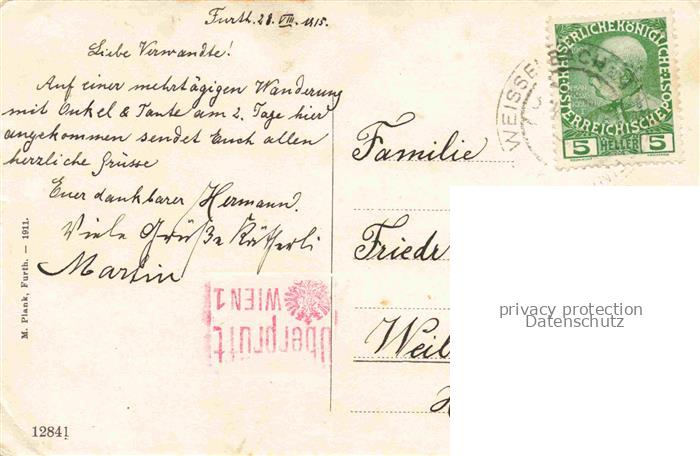 Furth. 28. VIII. 1915.
Liebe Verwandte!
Auf einer mehrtägigen Wanderung
mit Onkel & Tante am 2. Tage hier
angekommen sendet Euch allen
herzliche Grüsse
Euer dankbarer Hermann.
Viele Grüße Kätherli
Martin
M. Plank, Furth. — 1911.
12841
Überprüft
WIEN 1
WEISSEN
KAISERLICHE KÖNIGLICHE
ÖSTERREICHISCHE POST
5 HELLER 5
Familie
Friedr
Weil
privacy protection
Datenschutz